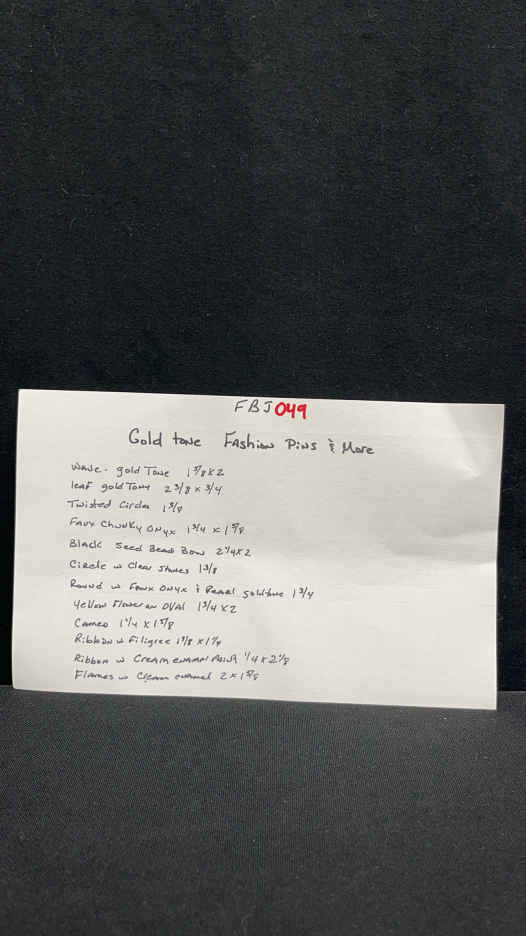 FBJ049
Gold tone Fashion Pins & More
Wave - gold Tone 1 7/8 x 2
leaf gold Tone 2 3/8 x 3/4
Twisted Circles 1 3/8
Faux Chunky Onyx 1 3/4 x 1 5/8
Black Seed Bead Bow 2 1/4 x 2
Circle w Clear Stones 1 3/8
Round w Faux Onyx & Pearl goldtone 1 3/4
Yellow Flower on OVAL 1 3/4 x 2
Cameo 1 1/4 x 1 5/8
Ribbon w Filigree 1 7/8 x 1 1/4
Ribbon w Cream enamel 1/4 x 2 1/8
Flames w Cream enamel 2 x 1 5/8